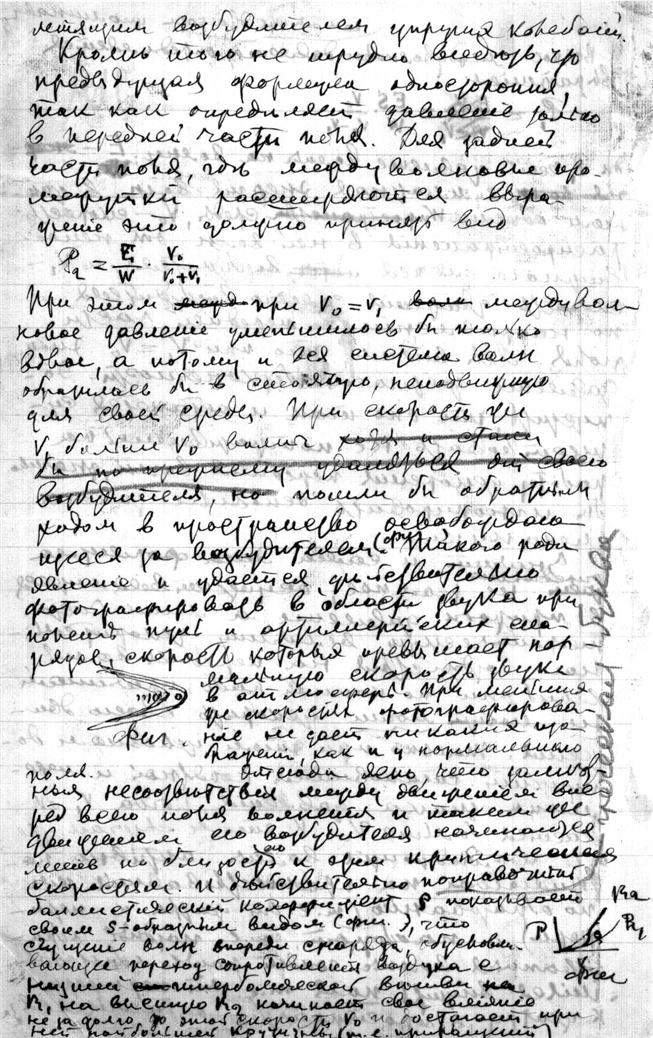 летящим возбудителем упругия колебанія.
Кромѣ того не трудно видѣть, что
предыдущая формула односторонняя,
так как опредѣляет давленіе только
в передней части поля. Для задней
части поля, гдѣ междуволновые про-
межутки расширяются выра-
женіе это должно принять вид
P₂ = E₁/W · V₀/(V₀+V₁)
При этом при V₀ = V₁ междувол-
новое давленіе уменьшилось бы только
вдвое, а потому и вся система волн
обратилась бы в стоячую, неподвижную
для своей среды. При скорости же
V больше V₀ волны хотя и стали
бы по прежнему удаляться от своего
возбудителя, но пошли бы обратным
ходом в пространство освобождаю
щееся за возбудителем (фиг). Такого рода
явленіе и удается дѣйствительно
фотографировать в области звука при
полетѣ пуль и артиллерійских сна-
рядов, скорость которых превышает нор
мальную скорость звука
в атмосферѣ. При меньших
же скоростях фотографирова-
фиг. ніе не дает никаких изо-
бражений, как и у нормального
поля. Отсюда ясно, что замѣт-
ныя несоотвѣтствия между движеніем впе
ред всего поля волненія и таким же
движеніем его возбудителя начинаются
лишь по близости к этим критическим
скоростям. И дѣйствительно поправочный
баллистическій коэффиціент S показывает
своим S-образным видом (фиг. ), что
сгущеніе волн впереди снаряда, обусловли-
вающее переход сопротивленія воздуха с
низшей гиперболической вѣтви на
R₁, на высшую R₂ начинает свое вліяніе
не за долго до этой скорости V₀ и достигает при
ней наибольшей крутизны (т.е. приращений)
P R₂ R₁
фиг